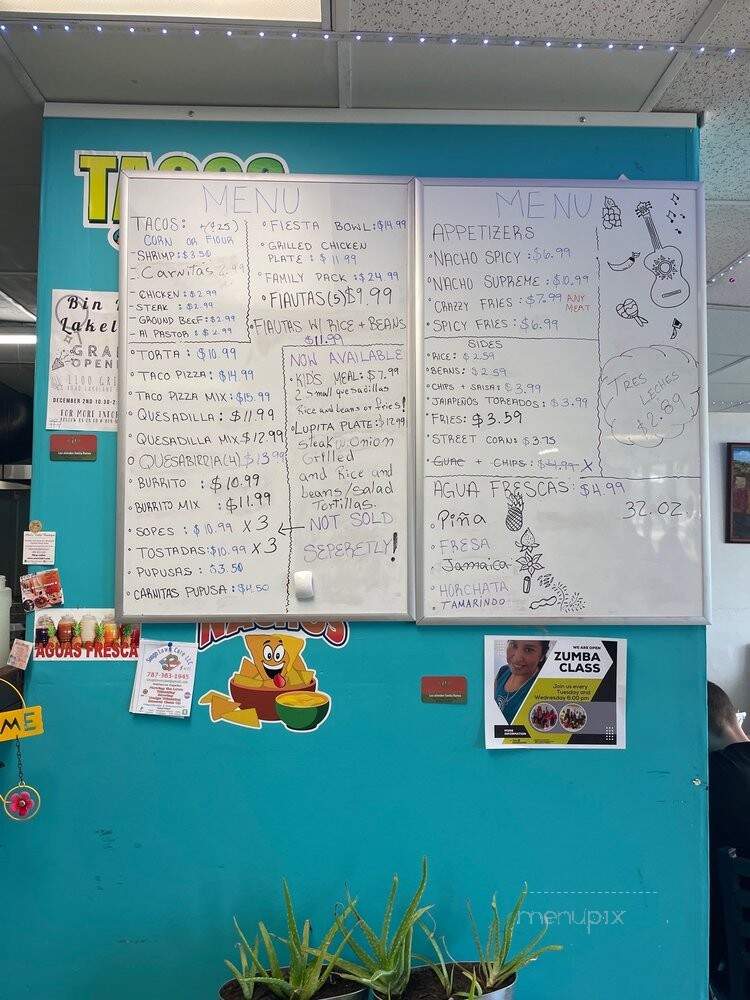 TACOS
MENU
TACOS: +(¢25)
CORN OR FlOUR
- SHRIMP: $3.50
- Carnitas 2.99
- CHICKEN: $2.99
- STEAK : $2.99
- GROUND BEEF: $2.99
- Al PASTOR : $2.99
• TORTA : $10.99
• TACO PIZZA: $14.99
TACO PIZZA MIX: $15.99
• QUESADILLA : $11.99
• QUESADILLA MIX $12.99
QUESABIRRIA(4) $13.99
• BURRITO : $10.99
• BURRITO MIX : $11.99
• SOPES : $10.99 X 3
• TOSTADAS: $10.99 X 3
• PUPUSAS : $3.50
CARNITAS PUPUSA : $4.50
• FIESTA BOWL: $14.99
• GRILLED CHICKEN
PLATE : $11.99
• FAMILY PACK : $24.99
• FlAUTAS (5) $9.99
• FlAUTAS W/ RICE + BEANS
$11.99
NOW AVAILABLE
• KID'S MEAL: $7.99
2 small quesadillas
Rice and beans or fries!
• LUPITA PLATE: $17.99
Steak w. Onion
Grilled
and Rice and
beans/salad
Tortillas.
NOT SOLD
SEPERETLY!
MENU
APPETIZERS
• NACHO SPICY : $6.99
• NACHO SUPREME : $10.99
• CRAZZY FRIES : $7.99 ANY
MEAT
• SPICY FRIES : $6.99
SIDES
• RICE : $2.59
• BEANS : $2.59
• CHIPS + SALSA : $3.99
• JALAPEÑOS TOREADOS : $3.99
• FRIES: $3.59
• STREET CORN: $3.75
• GUAC + CHIPS : $4.99 X
TRES
LECHES
$2.89
AGUA FRESCAS: $4.99
32.OZ.
• Piña
• FRESA
• Jamaica
• HORCHATA
• TAMARINDO
GRAND
OPEN
DECEMBER 2ND 10:30-2
FOR MORE INFO
AGUAS FRESCAS
787-383-1945
NACHOS
ME
WE ARE OPEN
ZUMBA
CLASS
Join us every
Tuesday and
Wednesday 6:00 pm
MORE
INFORMATION
menupix